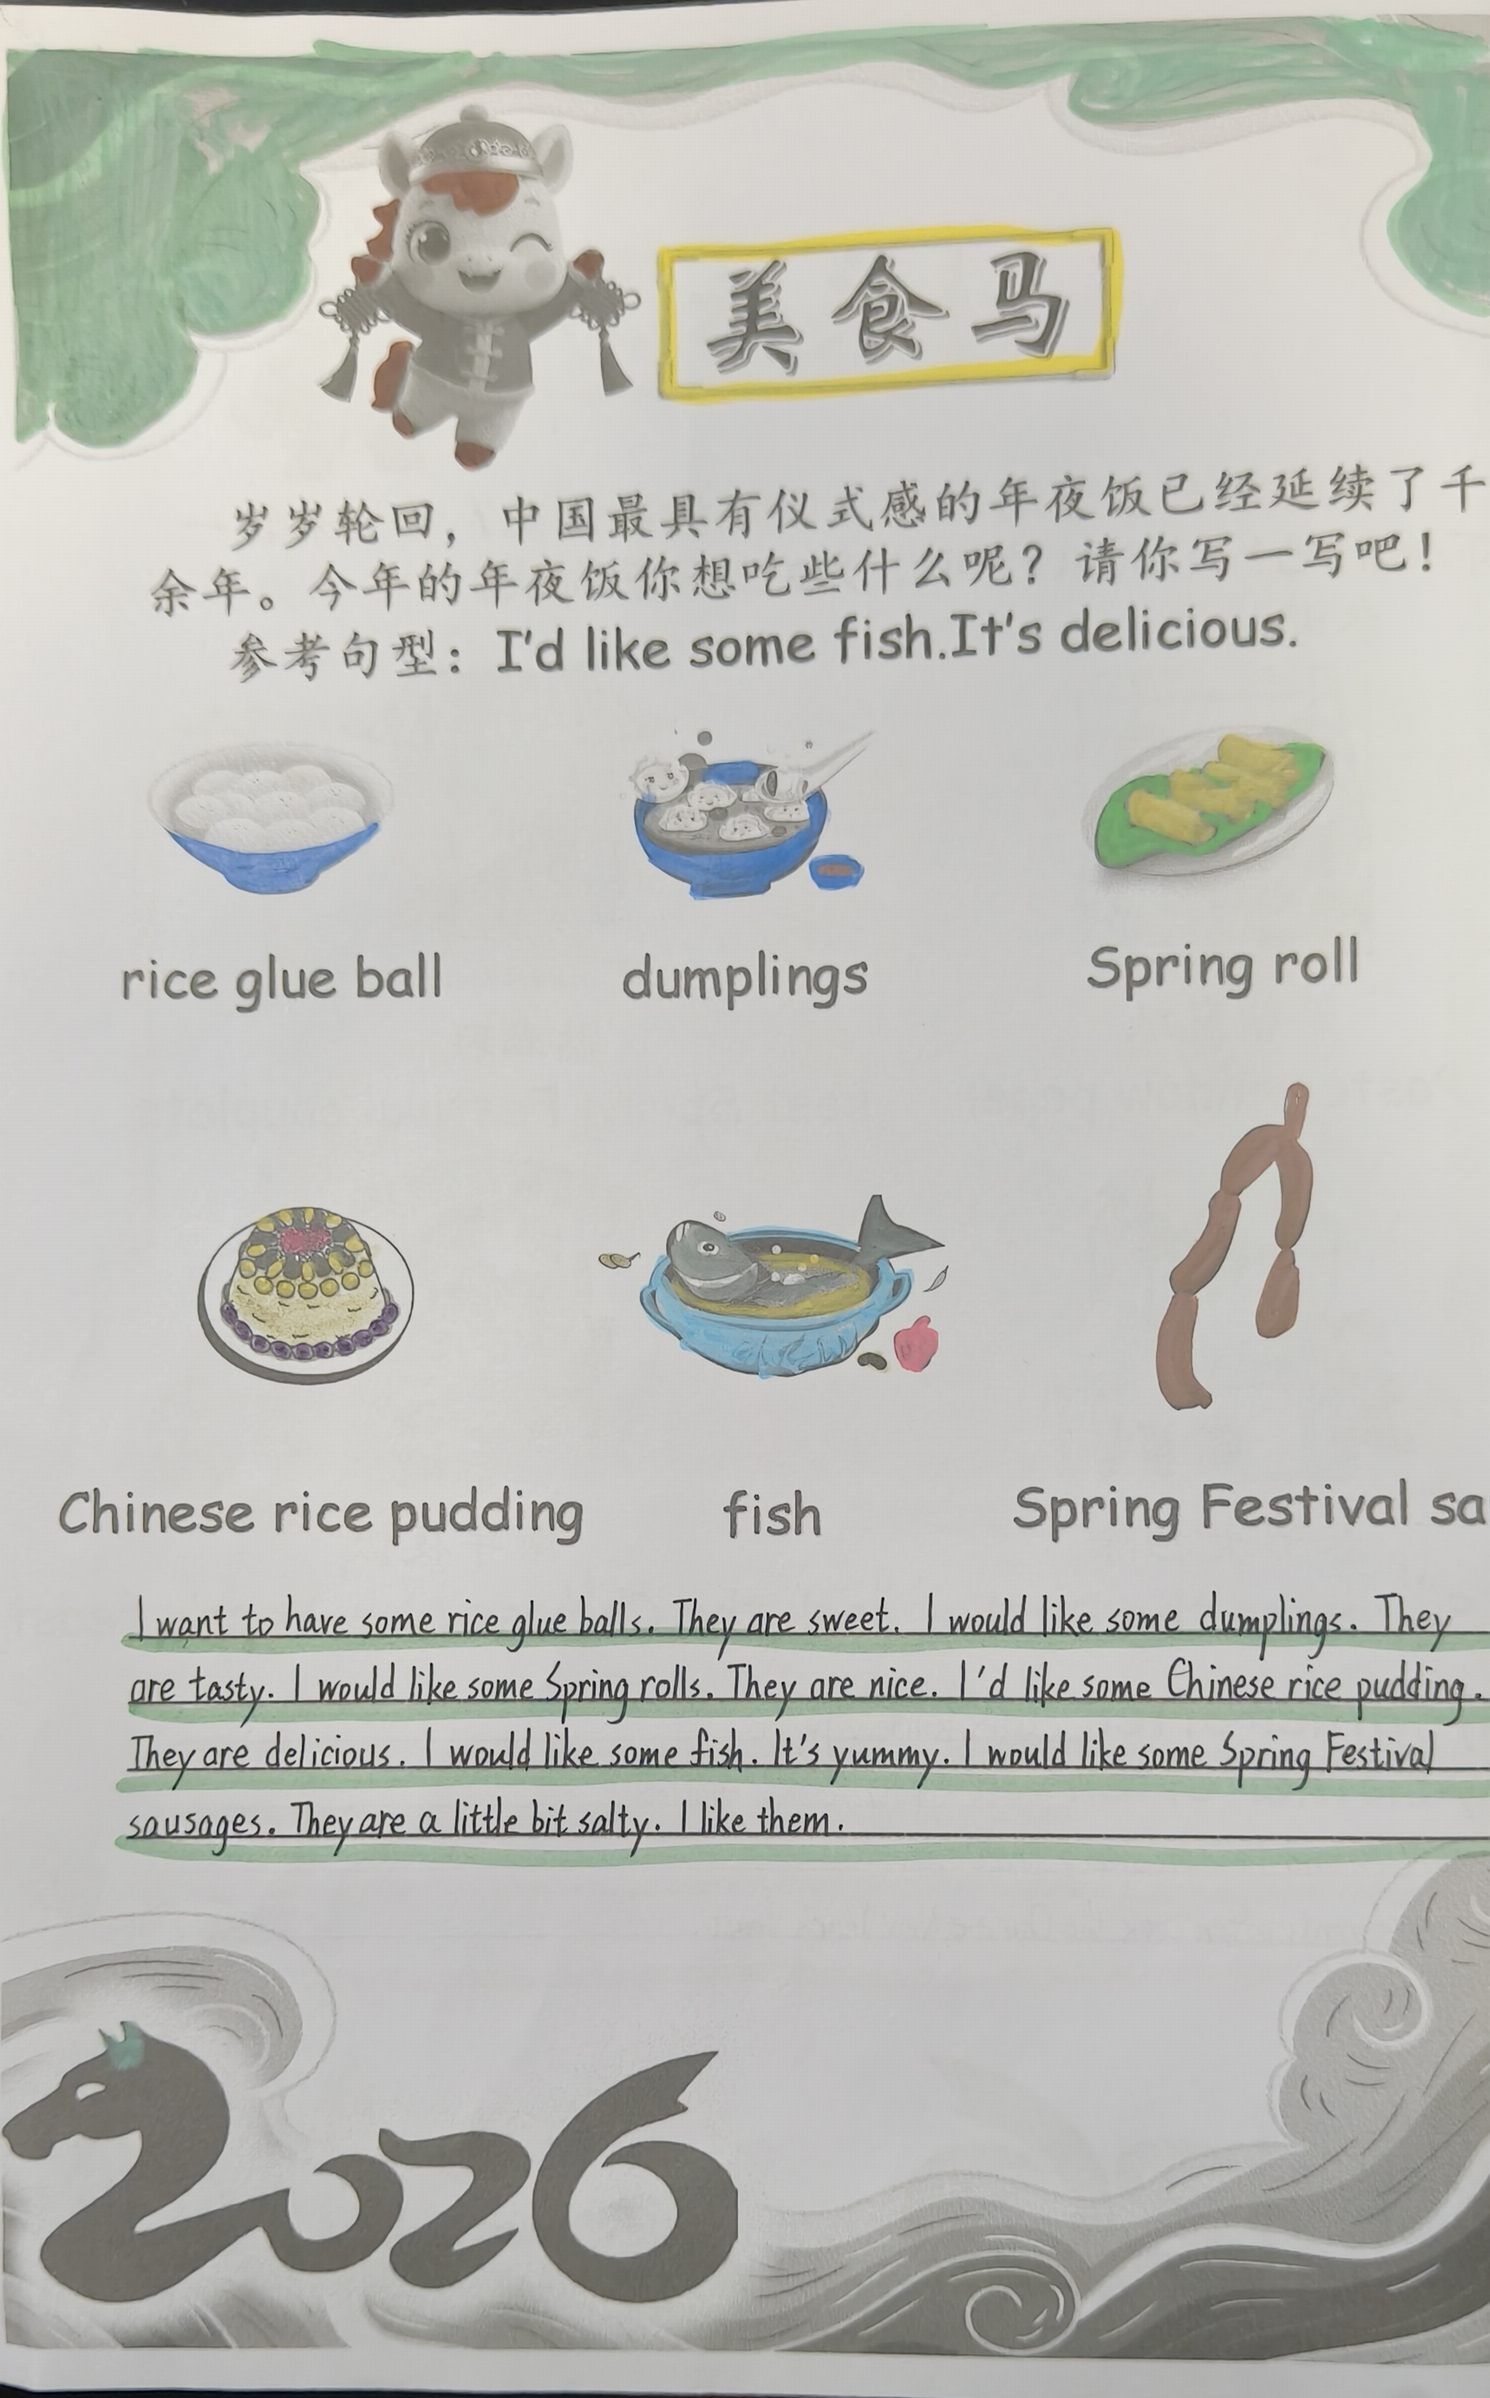 美食马
岁岁轮回，中国最具有仪式感的年夜饭已经延续了千
余年。今年的年夜饭你想吃些什么呢？请你写一写吧！
参考句型：I'd like some fish.It's delicious.
rice glue ball dumplings Spring roll
Chinese rice pudding fish Spring Festival sa
I want to have some rice glue balls. They are sweet. I would like some dumplings. They
are tasty. I would like some Spring rolls. They are nice. I'd like some Chinese rice pudding.
They are delicious. I would like some fish. It's yummy. I would like some Spring Festival
sausages. They are a little bit salty. I like them.
2026